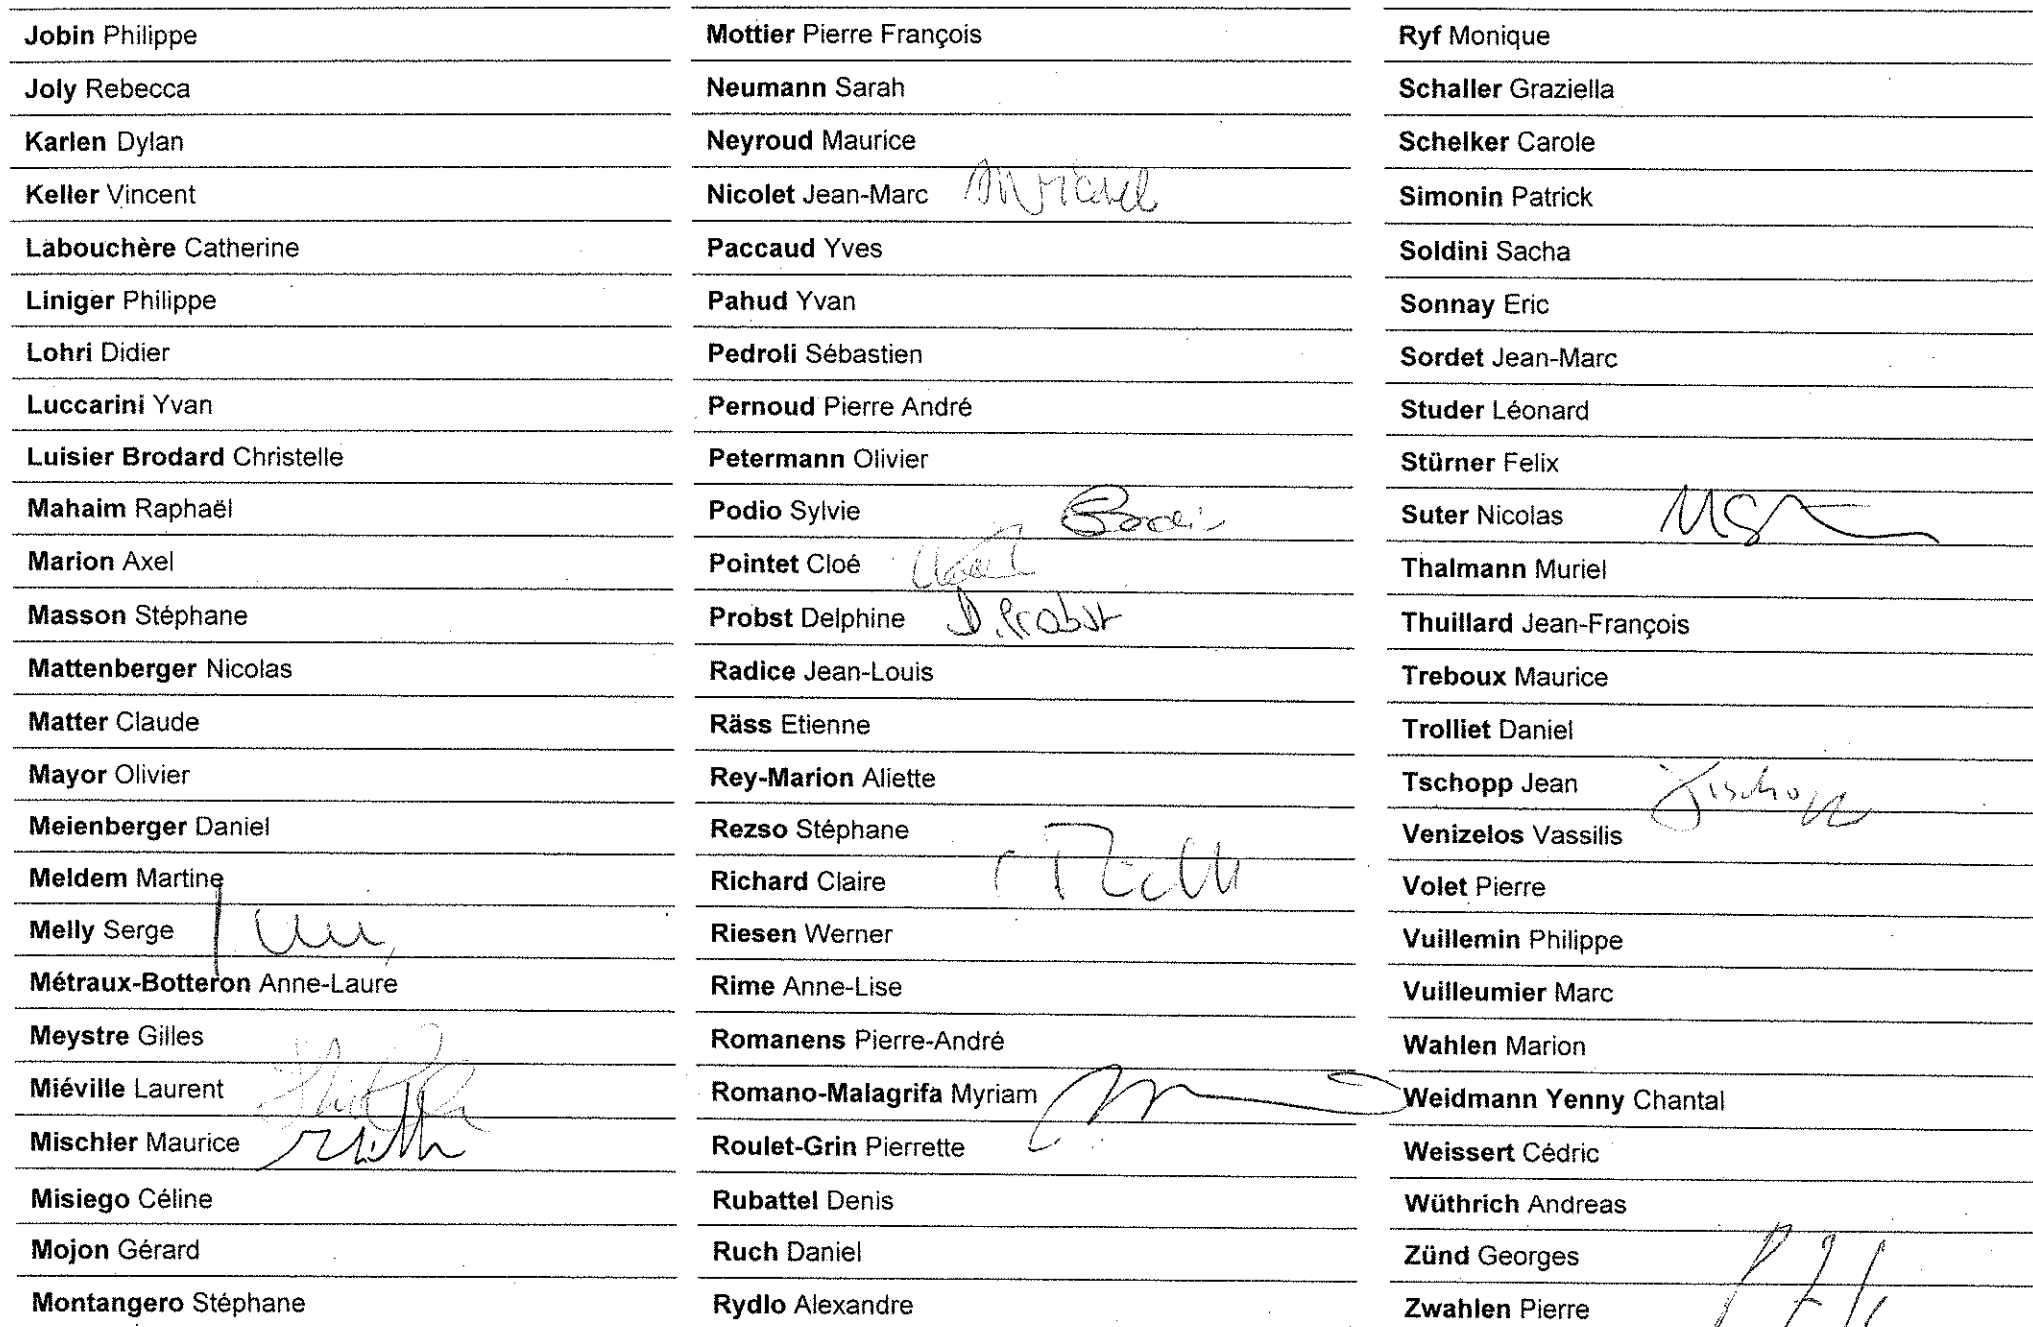 Jobin Philippe
Joly Rebecca
Karlen Dylan
Keller Vincent
Labouchère Catherine
Liniger Philippe
Lohri Didier
Luccarini Yvan
Luisier Brodard Christelle
Mahaim Raphaël
Marion Axel
Masson Stéphane
Mattenberger Nicolas
Matter Claude
Mayor Olivier
Meienberger Daniel
Meldem Martine
Melly Serge
Métraux-Botteron Anne-Laure
Meystre Gilles
Miéville Laurent
Mischler Maurice
Misiego Céline
Mojon Gérard
Montangero Stéphane
Mottier Pierre François
Neumann Sarah
Neyroud Maurice
Nicolet Jean-Marc
Paccaud Yves
Pahud Yvan
Pedroli Sébastien
Pernoud Pierre André
Petermann Olivier
Podio Sylvie
Pointet Cloé
Probst Delphine D. Probst
Radice Jean-Louis
Räss Etienne
Rey-Marion Aliette
Rezso Stéphane
Richard Claire
Riesen Werner
Rime Anne-Lise
Romanens Pierre-André
Romano-Malagrifa Myriam
Roulet-Grin Pierrette
Rubattel Denis
Ruch Daniel
Rydlo Alexandre
Ryf Monique
Schaller Graziella
Schelker Carole
Simonin Patrick
Soldini Sacha
Sonnay Eric
Sordet Jean-Marc
Studer Léonard
Stürner Felix
Suter Nicolas
Thalmann Muriel
Thuillard Jean-François
Treboux Maurice
Trolliet Daniel
Tschopp Jean Tschopp
Venizelos Vassilis
Volet Pierre
Vuillemin Philippe
Vuilleumier Marc
Wahlen Marion
Weidmann Yenny Chantal
Weissert Cédric
Wüthrich Andreas
Zünd Georges
Zwahlen Pierre